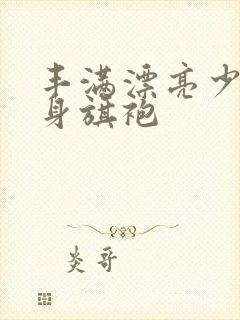 丰满漂亮少
身旗袍
炎哥